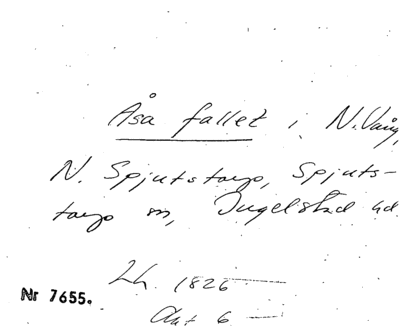 Åsa fallet i N. Vång,
N. Spjutstorp, Spjuts-
torp sn, Ingelstad hd.
Lh. 1826
Akt 6
Nr 7655.